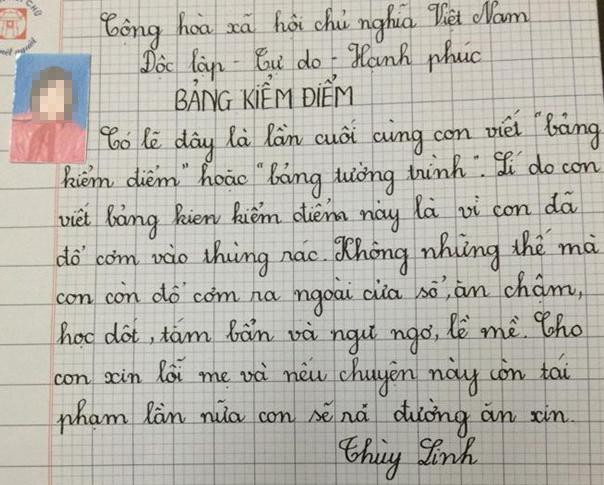 Cộng hòa xã hội chủ nghĩa Việt Nam
Độc lập - Tự do - Hạnh phúc
BẢNG KIỂM ĐIỂM
Có lẽ đây là lần cuối cùng con viết "bảng
kiểm điểm" hoặc "bảng tường trình". Lí do con
viết bảng kien kiểm điểm này là vì con đã
đổ cơm vào thùng rác. Không những thế mà
con còn đổ cơm ra ngoài cửa sổ, ăn chậm,
học dốt, tắm bẩn và ngư ngơ, lề mề. Cho
con xin lỗi mẹ và nếu chuyện này còn tái
phạm lần nữa con sẽ rả đường ăn xin.
Thùy Linh